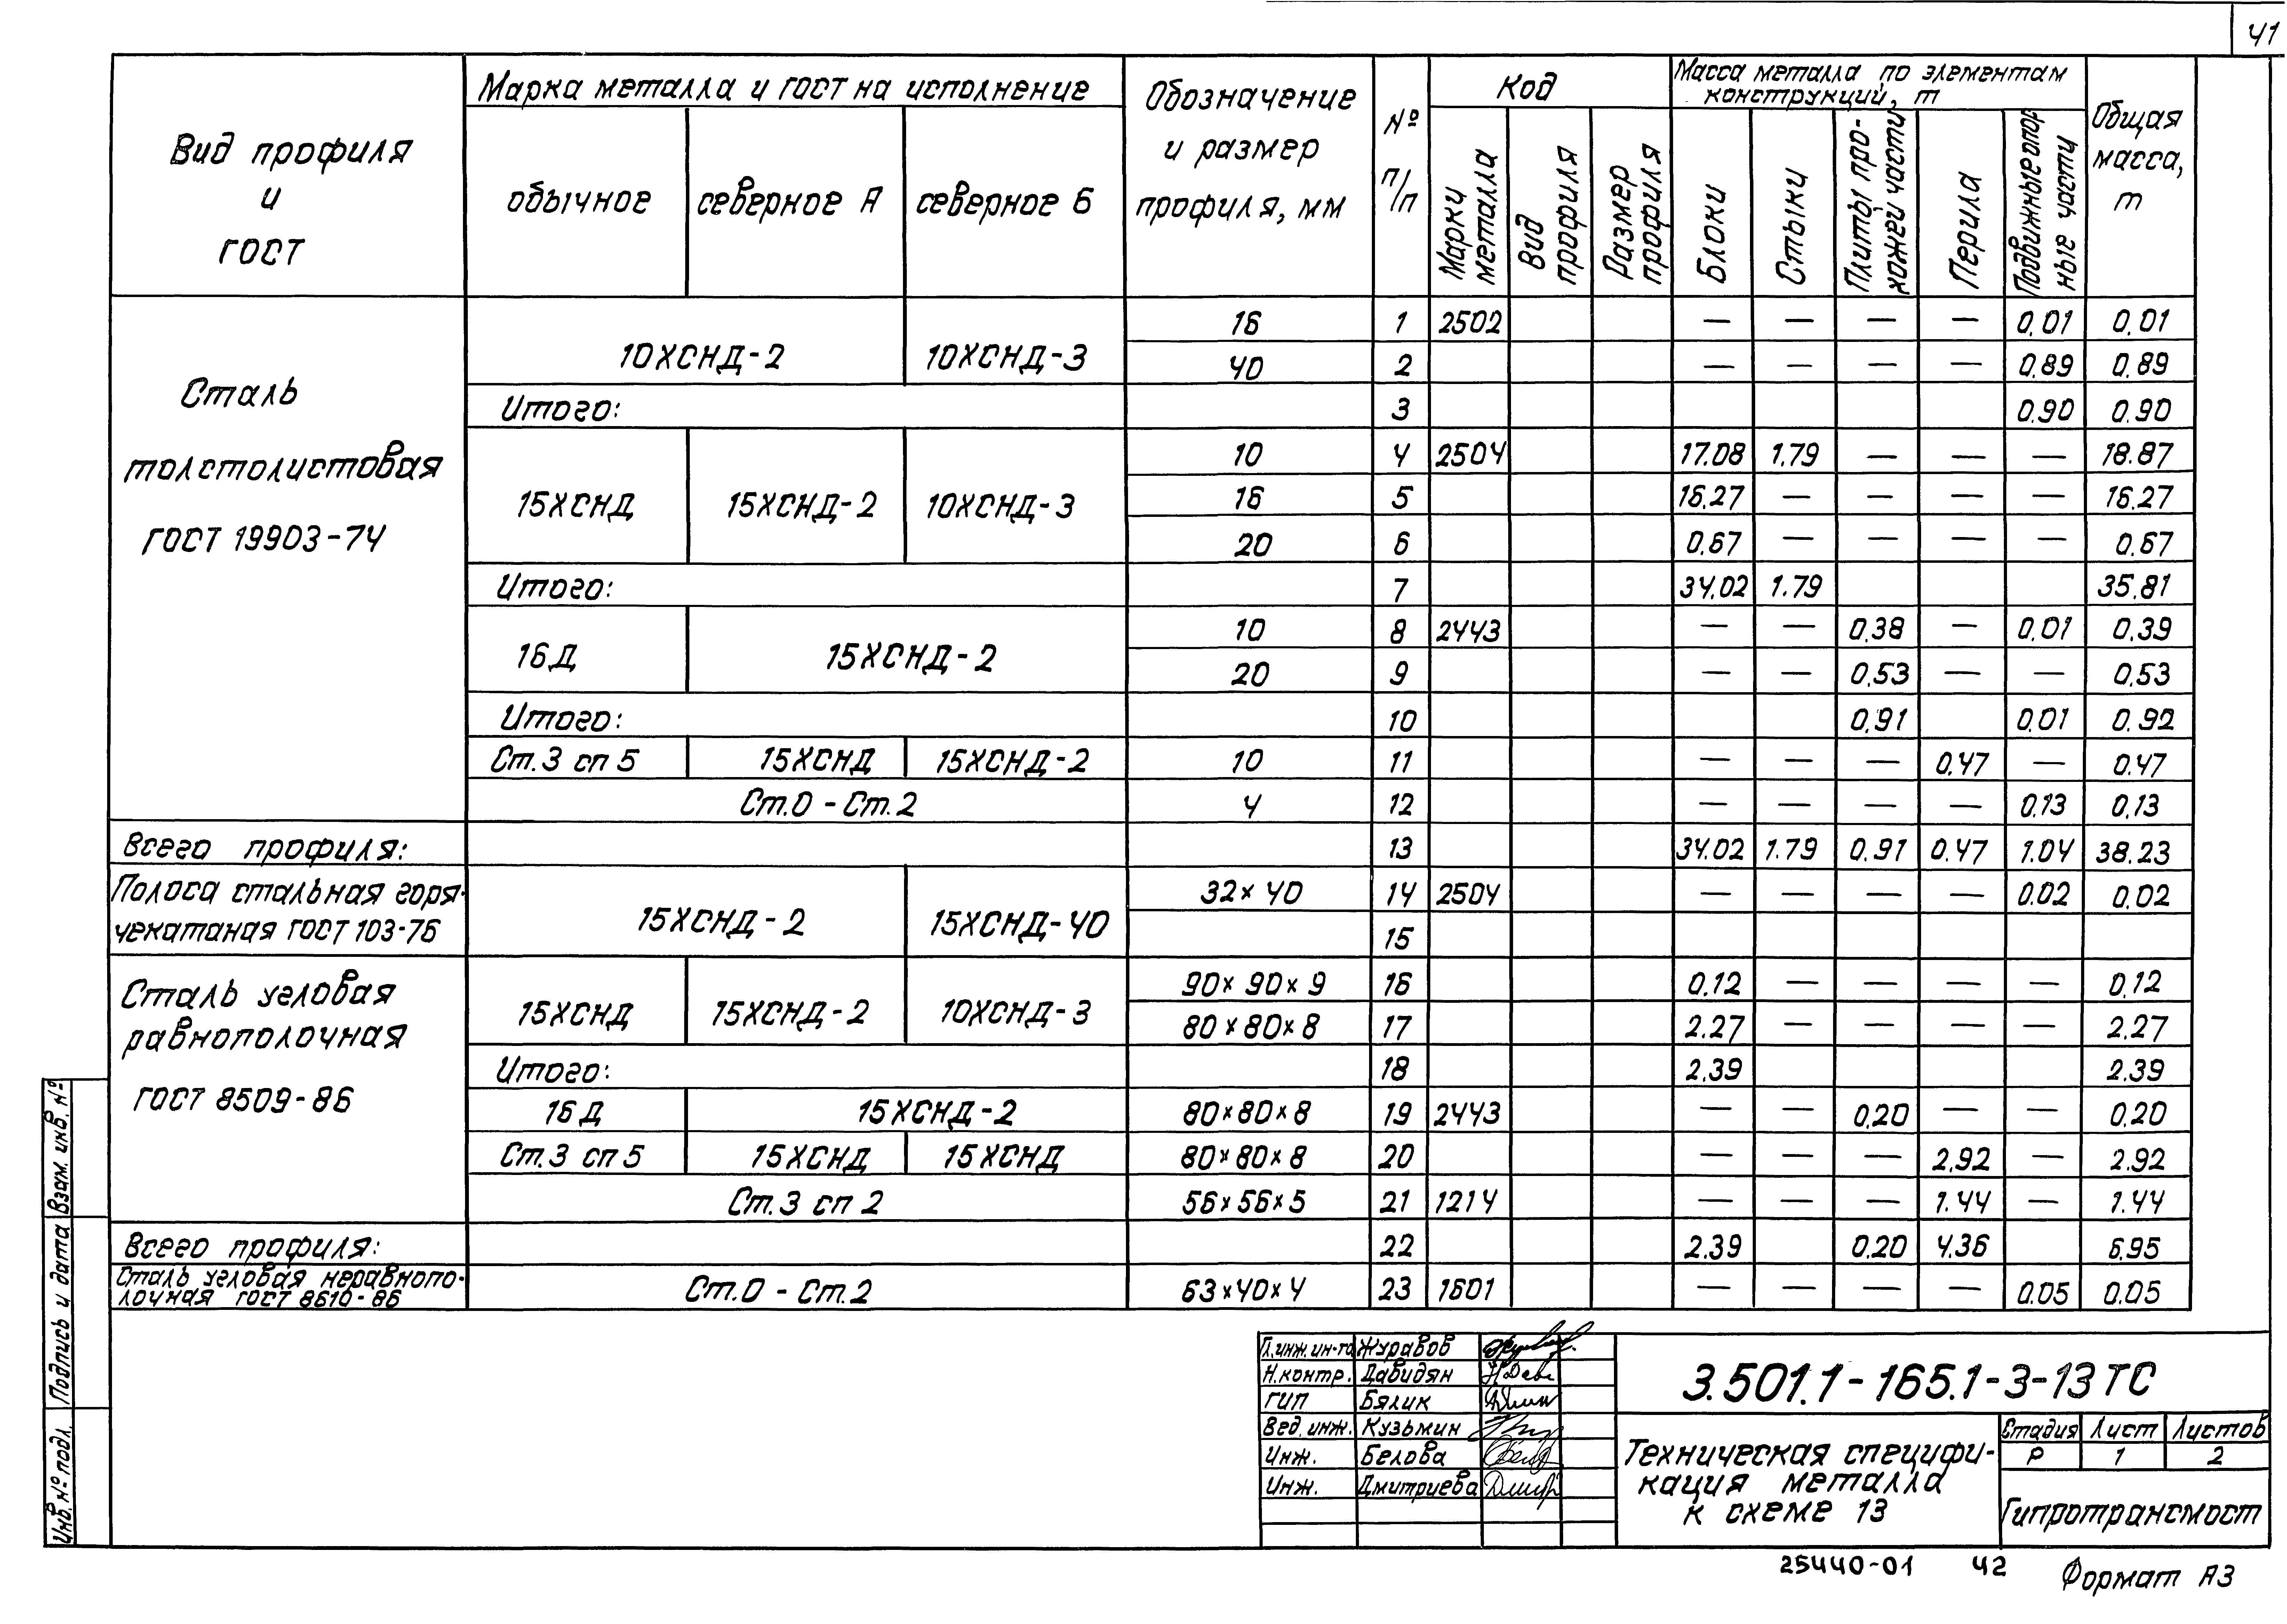 41
Вид профиля и ГОСТ
Марка металла и ГОСТ на исполнение
обычное
северное А
северное Б
Обозначение и размер профиля, мм
№ п/п
Код
Марки металла
Вид профиля
Размер профиля
Масса металла по элементам конструкций, т
Блоки
Стыки
Плиты проезжей части
Перила
Подвижные опорные части
Общая масса, т
Сталь
толстолистовая
ГОСТ 19903-74
10ХСНД-2 10ХСНД-3
16 1 2502 — — — — 0.01 0.01
40 2 — — — — 0.89 0.89
Итого: 3 0.90 0.90
15ХСНД 15ХСНД-2 10ХСНД-3
10 4 2504 17.08 1.79 — — — 18.87
16 5 16.27 — — — — 16.27
20 6 0.67 — — — — 0.67
Итого: 7 34.02 1.79 35.81
16Д 15ХСНД-2
10 8 2443 — — 0.38 — 0.01 0.39
20 9 — — 0.53 — — 0.53
Итого: 10 0.91 0.01 0.92
Ст.3 сп 5 15ХСНД 15ХСНД-2 10 11 — — — 0.47 — 0.47
Ст.0 - Ст.2 4 12 — — — — 0.13 0.13
Всего профиля: 13 34.02 1.79 0.91 0.47 1.04 38.23
Полоса стальная горя-
чекатаная ГОСТ 103-76
15ХСНД-2 15ХСНД-40
32×40 14 2504 — — — — 0.02 0.02
15
Сталь угловая
равнополочная
ГОСТ 8509-86
15ХСНД 15ХСНД-2 10ХСНД-3
90×90×9 16 0.12 — — — — 0.12
80×80×8 17 2.27 — — — — 2.27
Итого: 18 2.39 2.39
16Д 15ХСНД-2 80×80×8 19 2443 — — 0.20 — — 0.20
Ст.3 сп 5 15ХСНД 15ХСНД 80×80×8 20 — — — 2.92 — 2.92
Ст.3 сп 2 56×56×5 21 1214 — — — 1.44 — 1.44
Всего профиля: 22 2.39 0.20 4.36 6.95
Сталь угловая неравнопо-
лочная ГОСТ 8610-86
Ст.0 - Ст.2 63×40×4 23 1601 — — — — 0.05 0.05
Взам. инв. №
Подпись и дата
Инв. № подл.
Гл.инж.ин-та Журавов
Н.контр. Давидян
ГИП Бялик
Вед. инж. Кузьмин
Инж. Белова
Инж. Дмитриева
3.501.1-165.1-3-13ТС
Техническая специфи-
кация металла
к схеме 13
Стадия Лист Листов
Р 1 2
Гипротрансмост
25440-01 42
Формат А3